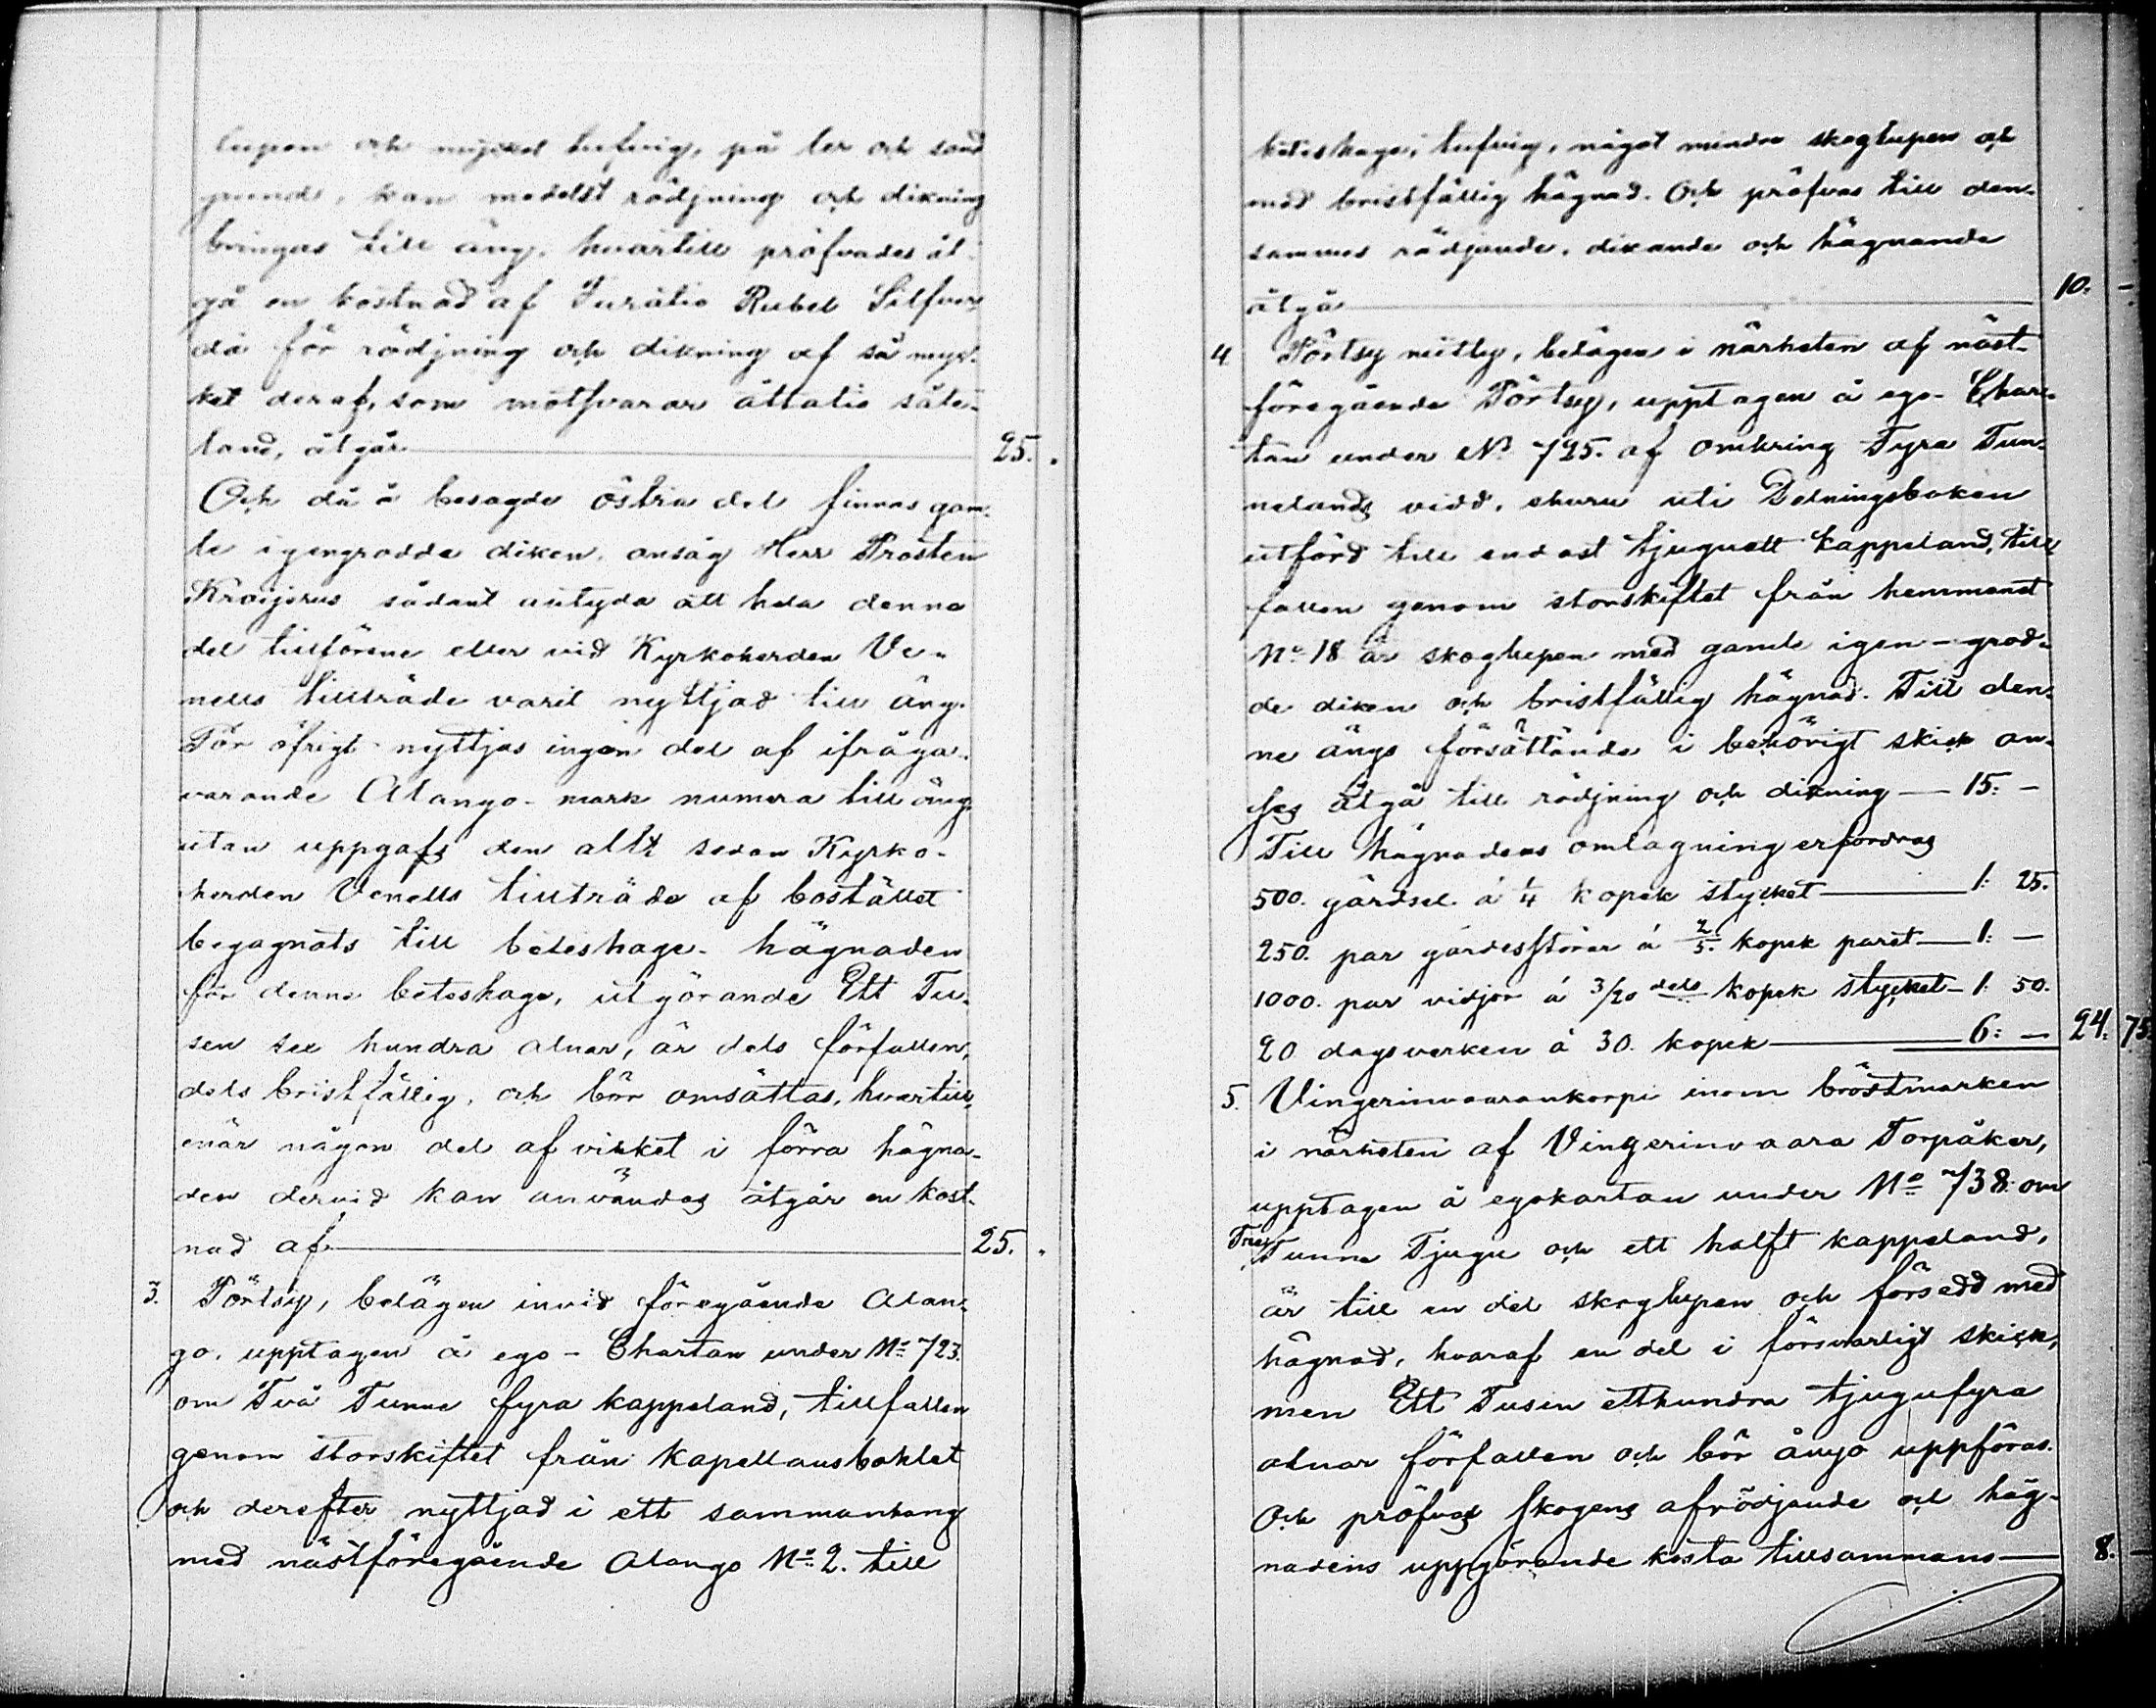 lupen och mycket tufvig, på ler och sand
grund, kan medelst rödjning och dikning
bringas till äng, hvartill pröfvades åt-
gå en kostnad af Rubel Silfver
då för rödjning och dikning af så myc-
ket deraf, som motsvarar åttatio
land, åtgår — 25. „
Och då å besagde östra del finnas gam-
le igengrodde diken, ansåg Herr Prosten
sådant antyda att hela denna
del tillförene eller vid Kyrkoherden Ve-
nells tillträde varit nyttjad till äng.
För öfrigt nyttjas ingen del af ifråga-
varande Alango-mark numera till äng
utan uppgafs den allt sedan Kyrko-
herden Venells tillträde af bostället
begagnats till beteshage. hägnaden
för denna beteshage, utgörande Ett Tu-
sen sex hundra alnar, är dels förfallen,
dels bristfällig, och bör omsättas, hvartill,
enär någon del af virket i förra hägna-
den dervid kan användas åtgår en kost-
nad af — 25. „
3. Pörtsy, belägen invid föregående Alan-
go, upptagen å ego-Chartan under No 723.
om Två Tunne fyra kappeland, tillfallen
genom storskiftet från Kapellansbohlet
och derefter nyttjad i ett sammanhang
med nästföregående Alango No 2. till
beteshage, tufvig, något mindre skoglupen och
med bristfällig hägnad. Och pröfvas till den-
sammas rödjande, dikande och hägnande
åtgå — 10. -
4. Pörtsy niitty, belägen i närheten af näst-
föregående Pörtsy, upptagen å ego-Char-
tan under No 725. af omkring Fyra Tun-
nelands vidd, ehuru uti Delningsboken
utförd till endast tjuguett kappeland, till
fallen genom storskiftet från hemmanet
No 18 är skoglupen med gamle igen-grod-
de diken och bristfällig hägnad. Till den-
ne ängs försättande i behörigt skick an-
ses åtgå till rödjning och dikning — 15: -
Till hägnadens omlagning erfordras
500. gärdsel á 1/4 kopek stycket — 1: 25.
250. par gärdesstörar á 2/5. kopek paret — 1: -
1000. par vidjor á 3/20 dels kopek stycket — 1: 50.
20 dagsverken á 30. kopek — 6: - 24. 75.
5. Vingerinvaarankorpi inom bröstmarken
i närheten af Vingerinvaara Torpåker,
upptagen å egokartan under No 738. om
Trey Tunne Tjugu och ett halft kappeland,
är till en del skoglupen och försedd med
hägnad, hvaraf en del i försvarligt skick,
men Ett Tusen etthundra tjugufyra
alnar förfallen och bör ånyo uppföras.
Och pröfvas skogens afrödjande och häg-
nadens uppgörande kosta tillsammans — 8. -